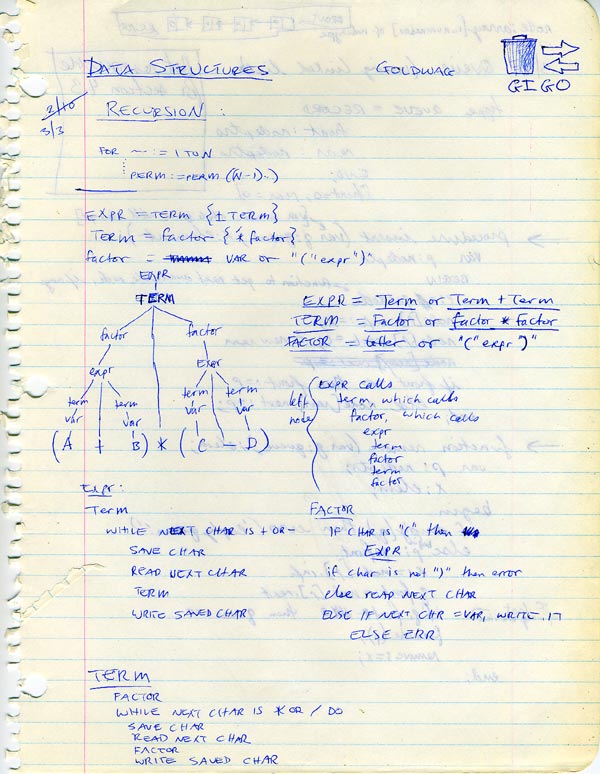 DATA STRUCTURES GOLDWAG GIGO
2/10
3/3
RECURSION :
FOR ~ := 1 TO N
PERM := PERM (N-1)..)
EXPR = TERM {± TERM}
TERM = factor {* factor}
factor = VAR or "("expr")"
EXPR
TERM
factor factor
expr Expr
term term term term
var var var var
(A + B) * (C - D)
EXPR = Term or Term + Term
TERM = Factor or factor * factor
FACTOR = letter or "("expr")"
left node
EXPR calls
term, which calls
factor, which calls
expr
term
factor
term
factor
Expr:
Term
WHILE NEXT CHAR IS + OR -
SAVE CHAR
READ NEXT CHAR
TERM
WRITE SAVED CHAR
FACTOR
IF CHAR IS "(" then
EXPR
if char is not ")" then error
else READ NEXT CHAR
ELSE IF NEXT CHR = VAR, WRITE IT
ELSE ERR
TERM
FACTOR
WHILE NEXT CHAR IS * OR / DO
SAVE CHAR
READ NEXT CHAR
FACTOR
WRITE SAVED CHAR